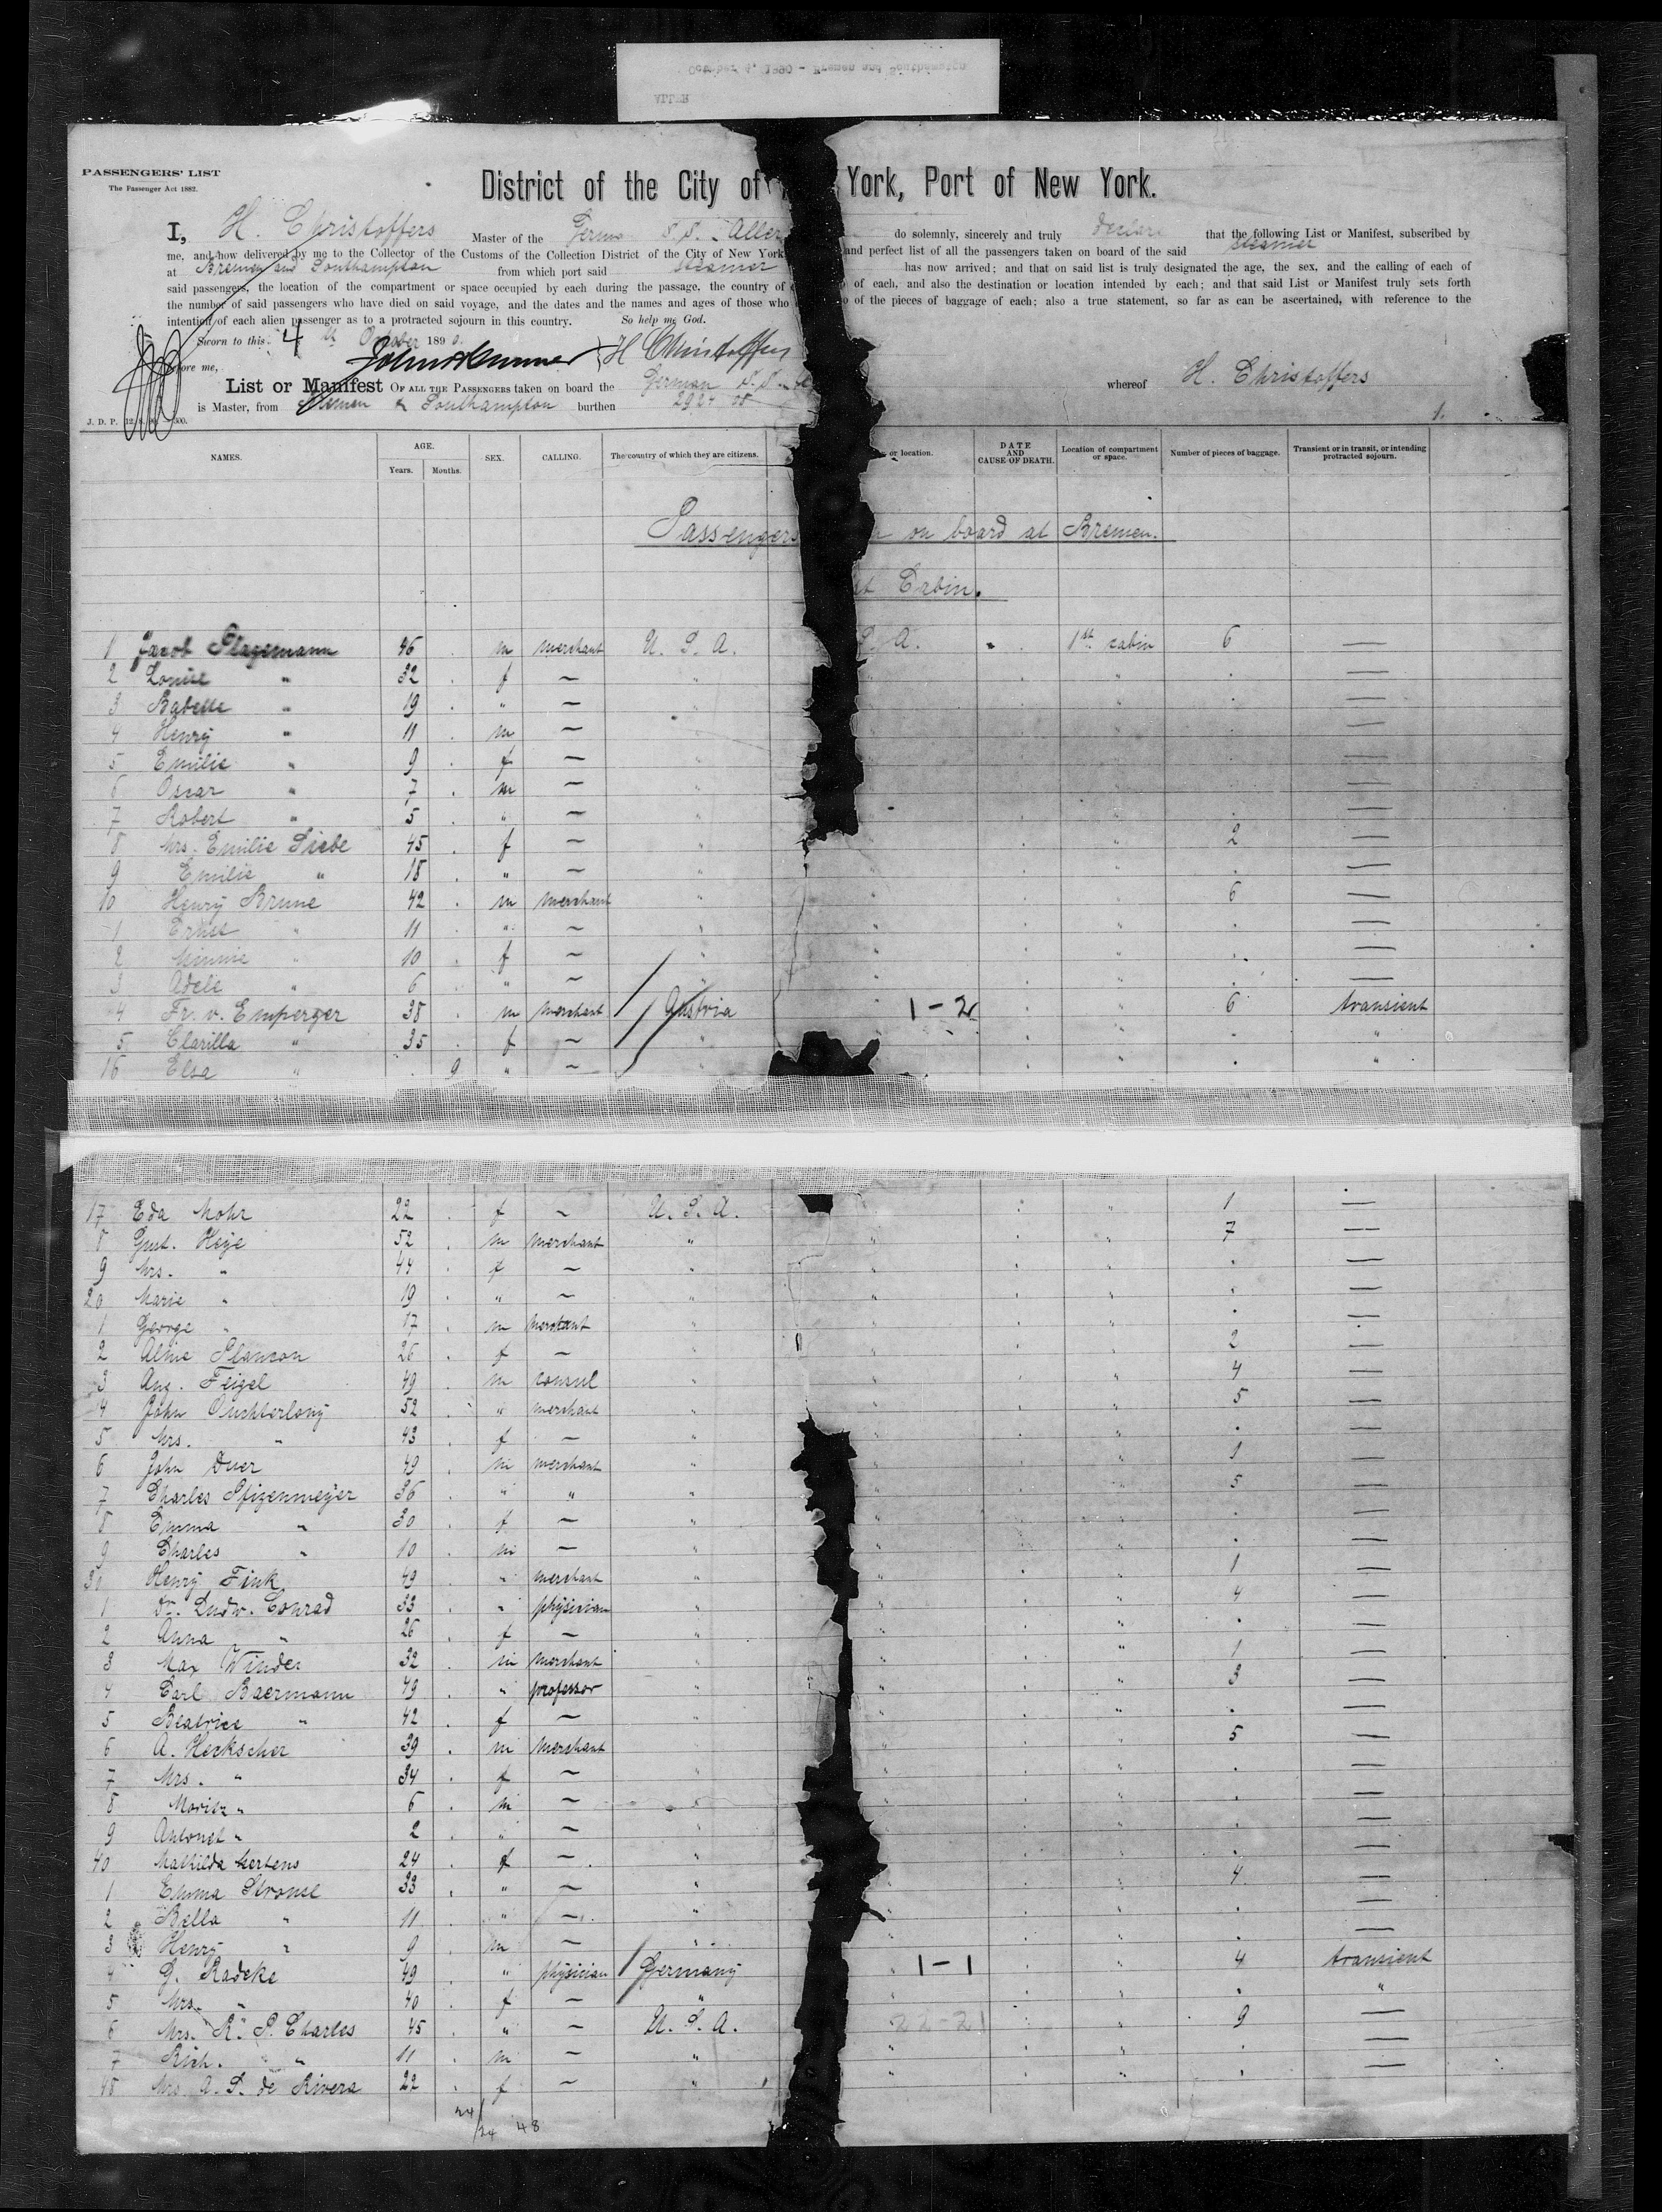 October 4, 1890 - Bremen and Southampton
ALLER
PASSENGERS' LIST
The Passenger Act 1882.
District of the City of York, Port of New York.
I, H. Christoffers Master of the German S.S. Aller do solemnly, sincerely and truly declare that the following List or Manifest, subscribed by
me, and now delivered by me to the Collector of the Customs of the Collection District of the City of New York and perfect list of all the passengers taken on board of the said steamer
at Bremen and Southampton from which port said steamer has now arrived; and that on said list is truly designated the age, the sex, and the calling of each of
said passengers, the location of the compartment or space occupied by each during the passage, the country of of each, and also the destination or location intended by each; and that said List or Manifest truly sets forth
the number of said passengers who have died on said voyage, and the dates and the names and ages of those who of the pieces of baggage of each; also a true statement, so far as can be ascertained, with reference to the
intention of each alien passenger as to a protracted sojourn in this country. So help me God.
Sworn to this 4th October 1890
before me, H Christoffers
List or Manifest OF ALL THE PASSENGERS taken on board the German S.S. whereof H. Christoffers
is Master, from Bremen & Southampton burthen
J. D. P. 1.
NAMES. AGE. Years. Months. SEX. CALLING. The country of which they are citizens. or location. DATE AND CAUSE OF DEATH. Location of compartment or space. Number of pieces of baggage. Transient or in transit, or intending protracted sojourn.
Passengers on board at Bremen.
Cabin.
1 Jacob Stagemann 46 m merchant U. S. A. S. A. 1st cabin 6 —
2 Louise " 32 f — " " —
3 Babette " 19 " — " " —
4 Henry " 11 m — " " —
5 Emilie " 9 f — " " —
6 Oscar " 7 m — " " —
7 Robert " 5 " — " " —
8 Mrs. Emilie Siebe 45 f — " " " 2 —
9 Emilie " 18 " — " " " —
10 Henry Brune 42 m merchant " " " 6 —
1 Ernst " 11 " — " " " —
2 Minnie " 10 f — " " " —
3 Adele " 6 " — " " " —
4 Fr. v. Emperger 38 m merchant Austria " 1-2 " 6 transient
5 Clarilla " 35 f — " " " "
16 Elsa " 9 " — " " "
17 Eda Mohr 22 f — U. S. A. " 1 —
8 Gust. Heye 52 m merchant " " " 7 —
9 Mrs. " 44 f — " " " —
20 Marie " 19 " — " " " —
1 George " 17 m merchant " " " —
2 Alme Plancon 26 f — " " " 2 —
3 Aug. Feigel 49 m consul " " " 4 —
4 John Ouchterlony 52 " merchant " " " 5 —
5 Mrs. " 43 f — " " " —
6 John Duer 49 m merchant " " " 1 —
7 Charles Pfizenmeyer 36 " " " " " 5 —
8 Emma " 30 f — " " " —
9 Charles " 10 m — " " " —
30 Henry Fink 49 " merchant " " " 1 —
1 Dr. Ludw. Conrad 33 " physician " " " 4 —
2 Anna " 26 f — " " " —
3 Max Winder 32 m merchant " " " 1 —
4 Carl Baermann 49 " professor " " " 3 —
5 Beatrice " 42 f — " " " —
6 A. Heckscher 39 m merchant " " 5 —
7 Mrs. " 34 f — " " " —
8 Moritz " 6 m — " " " —
9 Antonet " 2 " — " " " —
40 Mathilda Mertens 24 f — " " " —
1 Emma Strouse 33 " — " " " 4 —
2 Bella " 11 " — " " " —
3 Henry " 9 m — " " " —
4 G. Radeke 49 " physician Germany " 1-1 " 4 transient
5 Mrs. " 40 f — " " " "
6 Mrs. R. S. Charles 45 " — U. S. A. 22-21 " 9 —
7 Rich. " 11 m — " " " —
48 Mrs. A. S. de Rivera 22 f — " " " —
24/24 48